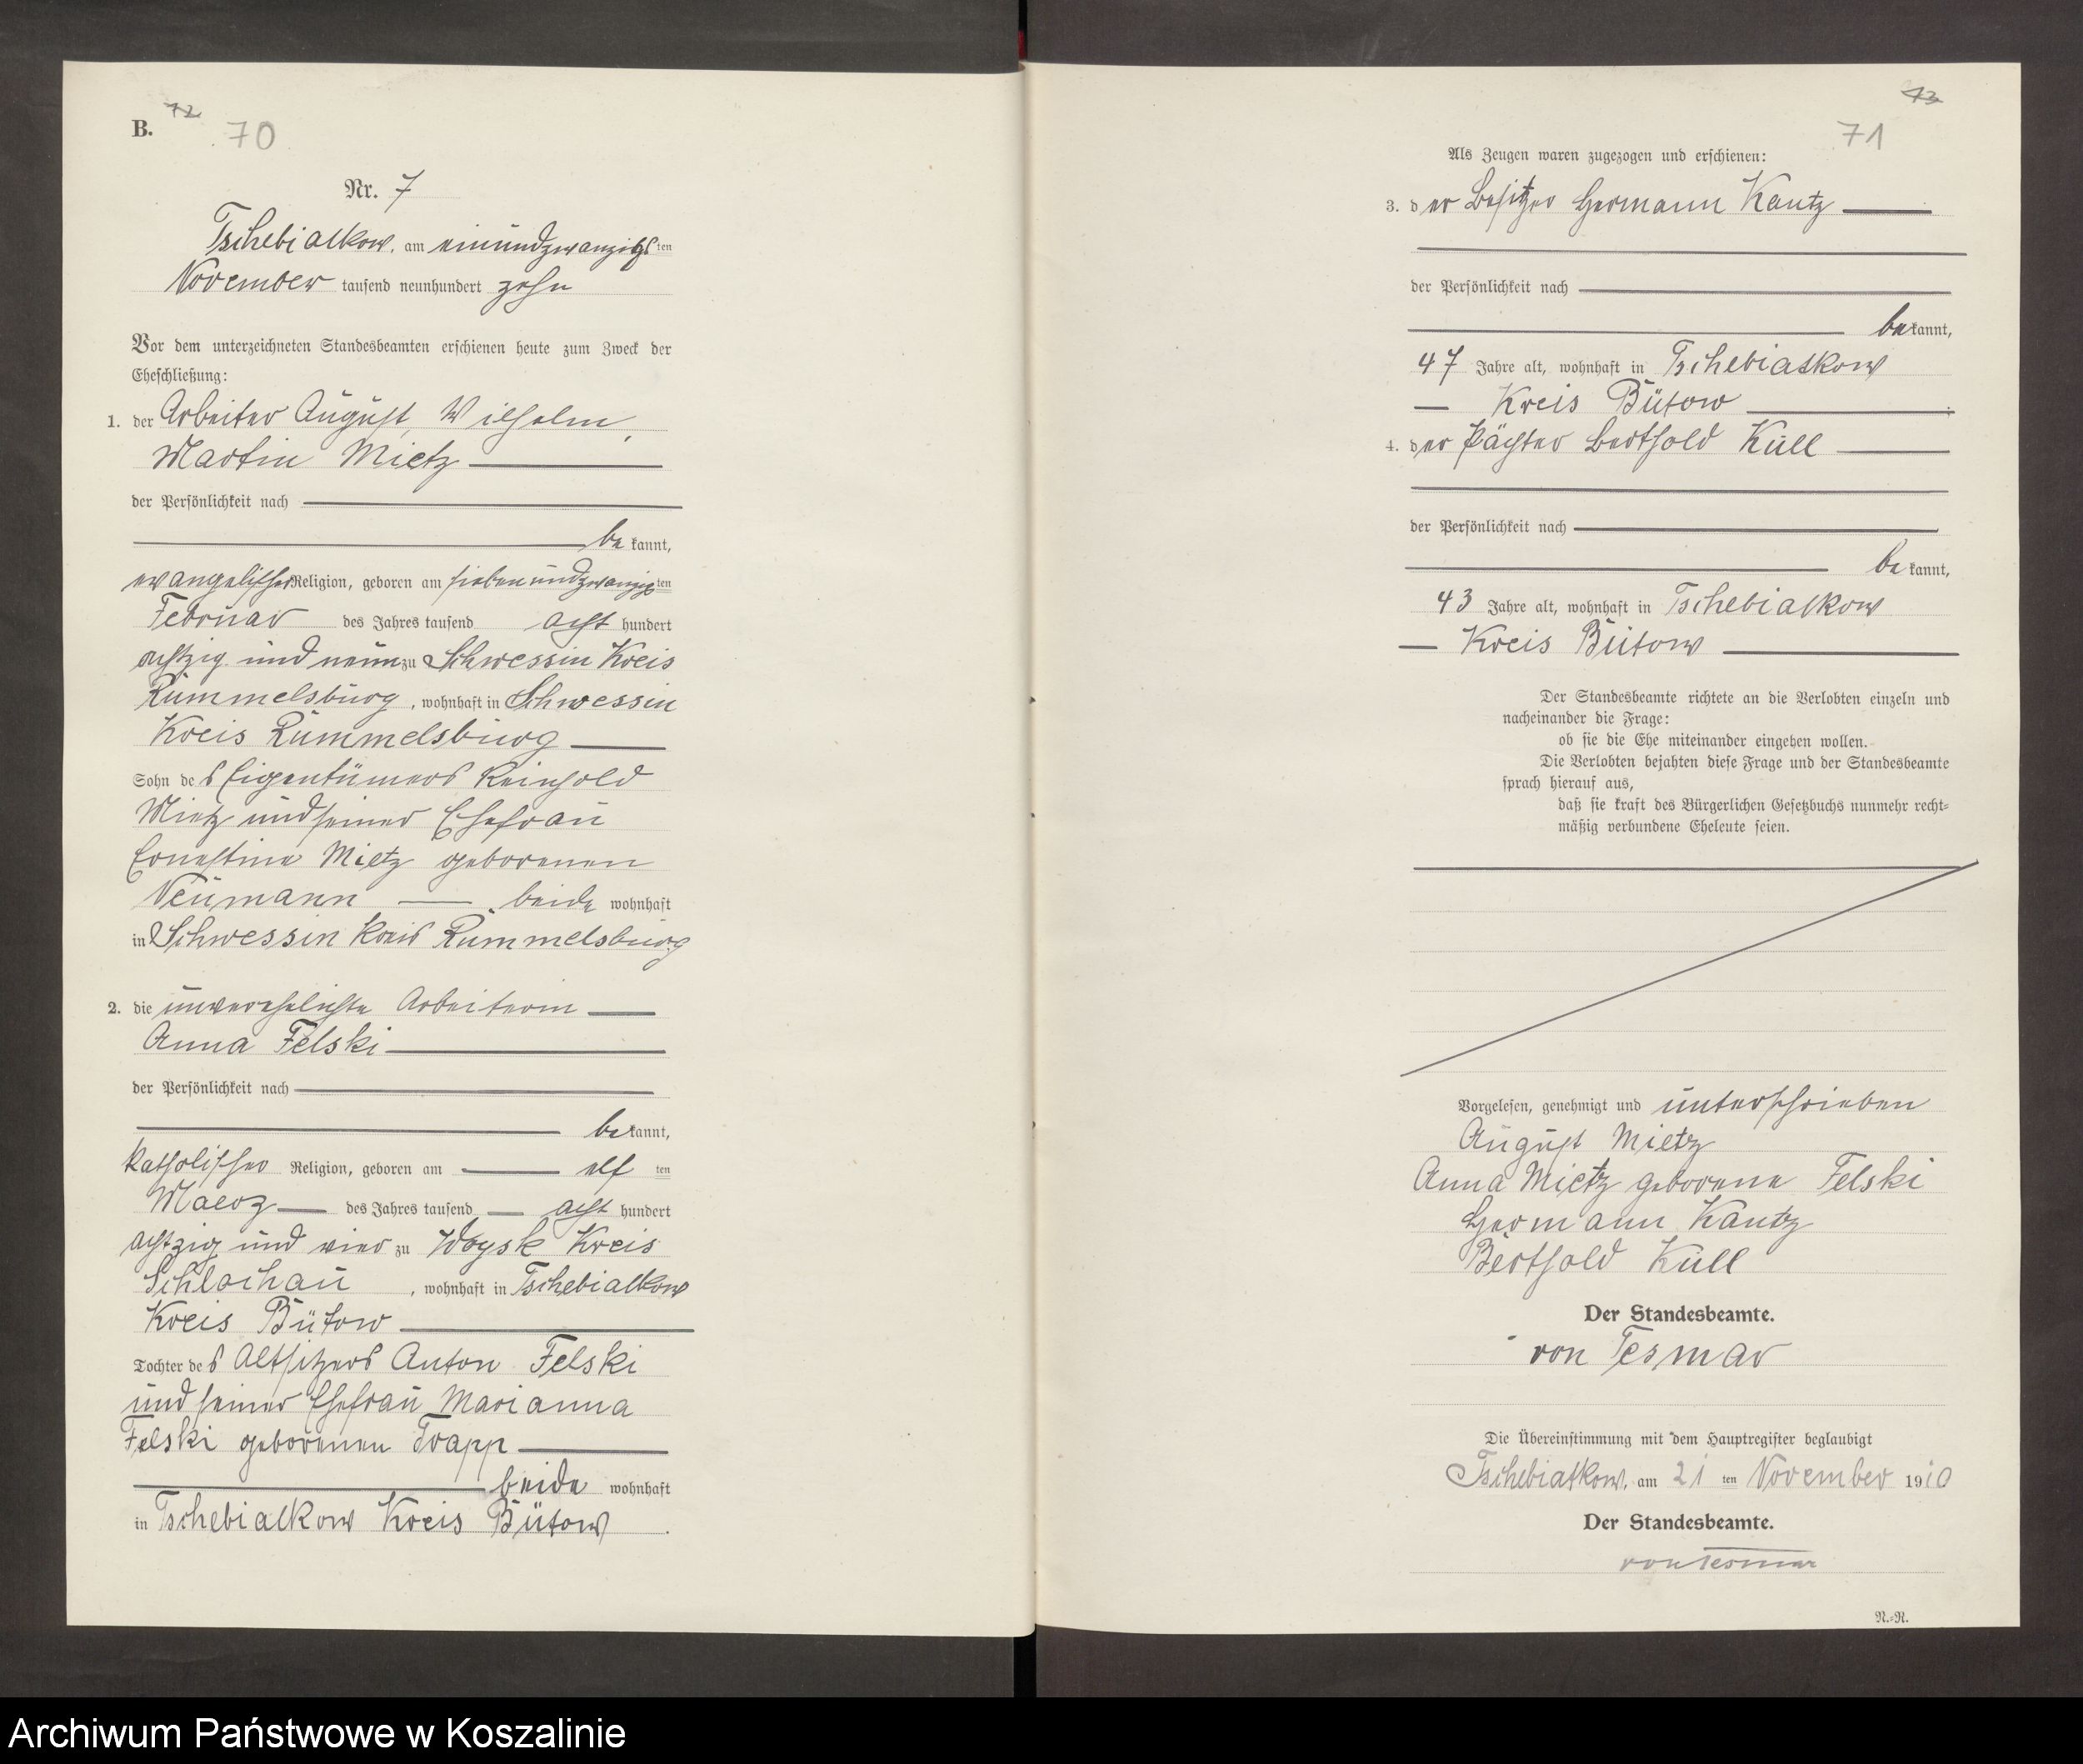 B. 72 70
Nr. 7
Tschebiatkow, am einundzwanzigsten
November tausend neunhundert zehn
Vor dem unterzeichneten Standesbeamten erschienen heute zum Zweck der
Eheschließung:
1. der Arbeiter August, Wilhelm,
Martin Mietz
der Persönlichkeit nach
bekannt,
evangelischer Religion, geboren am siebenundzwanzigsten
Februar des Jahres tausend acht hundert
achtzig und neun zu Schwessin Kreis
Rummelsburg, wohnhaft in Schwessin
Kreis Rummelsburg
Sohn des Eigentümers Reinhold
Mietz und seiner Ehefrau
Ernestine Mietz geborenen
Neumann beide wohnhaft
in Schwessin Kreis Rummelsburg
2. die unverehelichte Arbeiterin
Anna Felski
der Persönlichkeit nach
bekannt,
katholischer Religion, geboren am elften
Maerz des Jahres tausend acht hundert
achtzig und vier zu Woysk Kreis
Schlochau, wohnhaft in Tschebiatkow
Kreis Bütow
Tochter des Altsitzers Anton Felski
und seiner Ehefrau Marianna
Felski geborenen Trapp
beide wohnhaft
in Tschebiatkow Kreis Bütow.
73
71
Als Zeugen waren zugezogen und erschienen:
3. der Besitzer Hermann Kautz
der Persönlichkeit nach
bekannt,
47 Jahre alt, wohnhaft in Tschebiatkow
Kreis Bütow
4. der Pächter Berthold Küll
der Persönlichkeit nach
bekannt,
43 Jahre alt, wohnhaft in Tschebiatkow
Kreis Bütow
Der Standesbeamte richtete an die Verlobten einzeln und
nacheinander die Frage:
ob sie die Ehe miteinander eingehen wollen.
Die Verlobten bejahten diese Frage und der Standesbeamte
sprach hierauf aus,
daß sie kraft des Bürgerlichen Gesetzbuchs nunmehr recht-
mäßig verbundene Eheleute seien.
Vorgelesen, genehmigt und unterschrieben
August Mietz
Anna Mietz geborene Felski
Hermann Kautz
Berthold Küll
Der Standesbeamte.
von Tesmar
Die Übereinstimmung mit dem Hauptregister beglaubigt
Tschebiatkow, am 21 ten November 1910
Der Standesbeamte.
von Tesmar
N.-R.
Archiwum Państwowe w Koszalinie